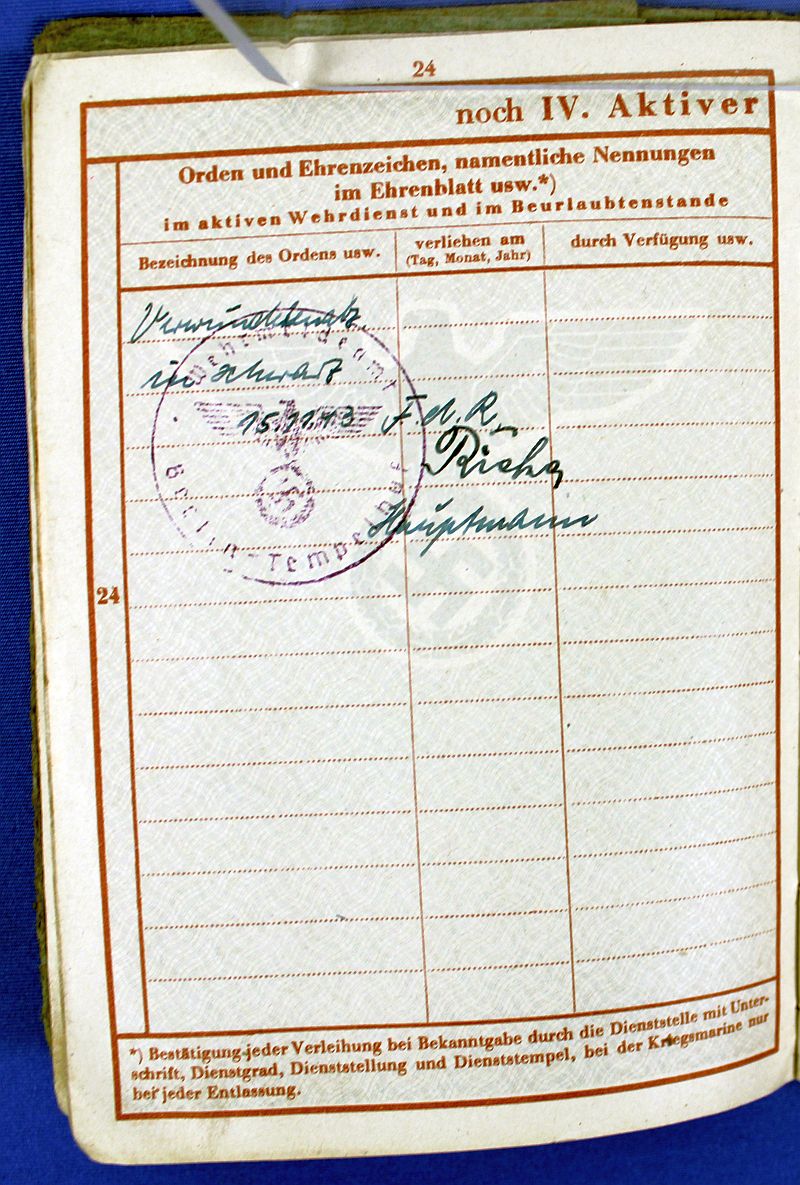 24
noch IV. Aktiver
Orden und Ehrenzeichen, namentliche Nennungen
im Ehrenblatt usw.*)
im aktiven Wehrdienst und im Beurlaubtenstande
Bezeichnung des Ordens usw.
verliehen am
(Tag, Monat, Jahr)
durch Verfügung usw.
in schwarz
15.11.43 F.d.R.
Hauptmann
Wehrmeldeamt
Berlin-Tempelhof
24
*) Bestätigung jeder Verleihung bei Bekanntgabe durch die Dienststelle mit Unter-
schrift, Dienstgrad, Dienststellung und Dienststempel, bei der Kriegsmarine nur
bei jeder Entlassung.